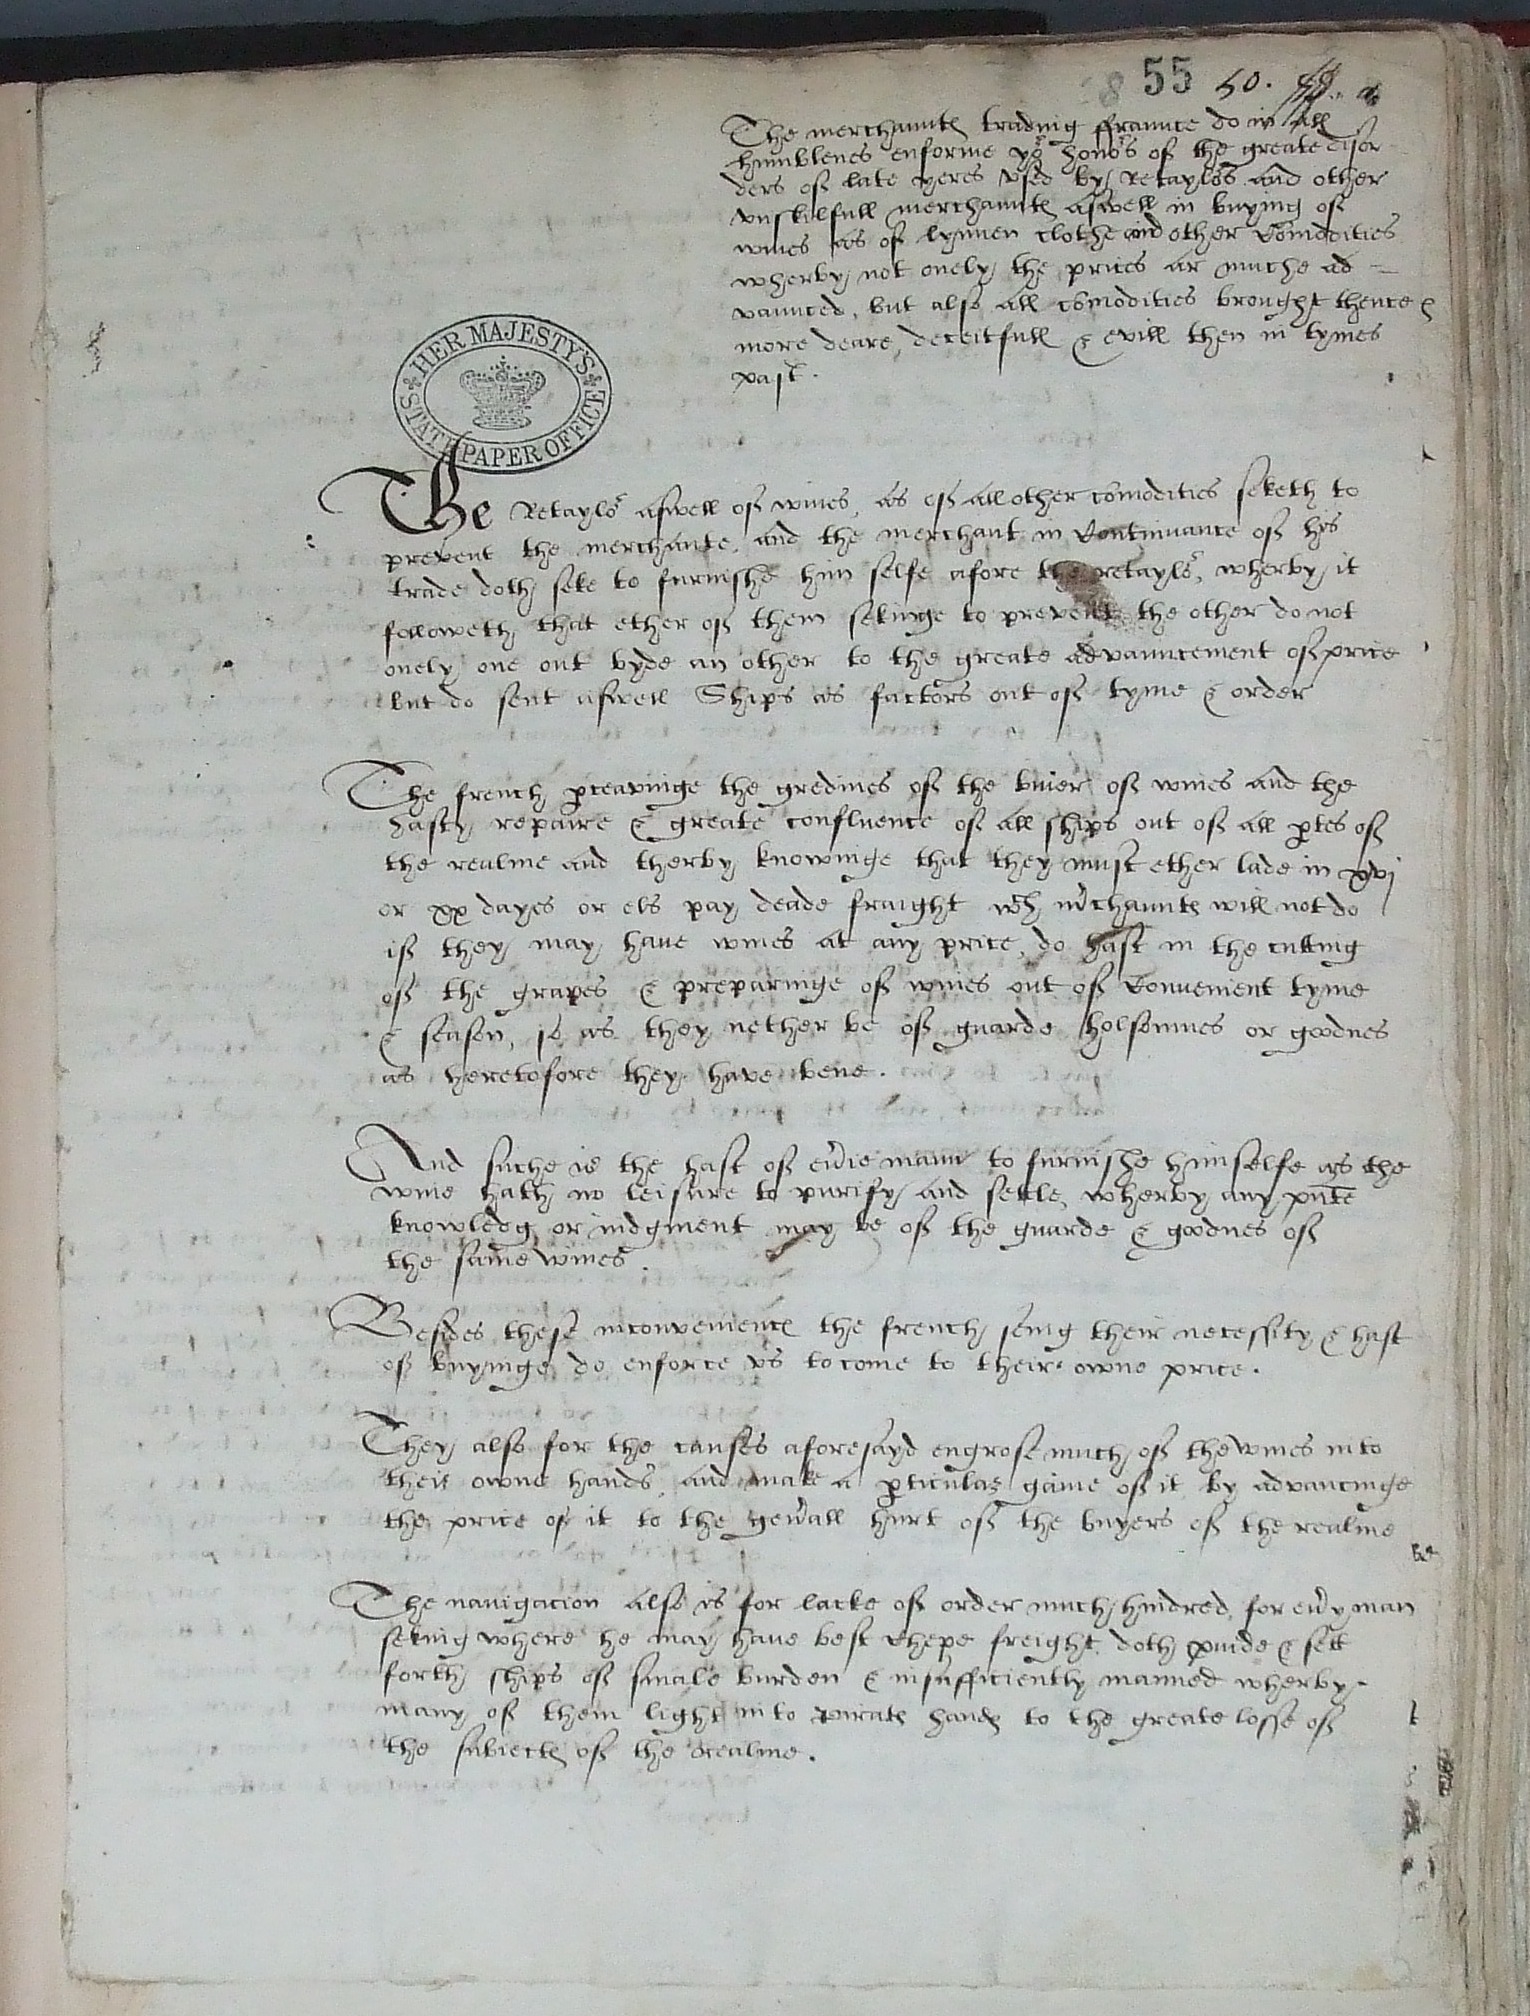 55 50.
The merchauntes trading ffraunce do in all
humblenes enforme yor honors of the greate disor
ders of late yeres vsed by Retaylors and other
vnskilfull merchauntes aswell in buying of
wines as of lynnen clothe and other comodities
wherby not onely the prices ar muche ad =
vaunced, but also all comodities brought thence
more deare, deceitfull & evill then in tymes
past.
HER MAJESTY'S
STATE PAPER OFFICE
The Retaylor aswell of wines, as of all other comodities seketh to
prevent the merchante, and the merchant in Continuance of his
trade doth seke to furnishe him selfe afore the retaylor, wherby it
followeth that ether of them sekinge to prevent the other do not
onely one out byde an other to the greate advauncement of price
but do sent aswell Ships as factors out of tyme & order
The french pceavinge the gredines of the buier of wines and the
hasty repaire & greate confluence of all ships out of all ptes of
the realme and therby knowinge that they must ether lade in xvj
or xx dayes or els pay deade fraight wch mchauntes will not do
if they may haue wines at any price, do hast in the cutting
of the grapes & preparinge of wines out of Conuenient tyme
& season, so as they nether be of guarde holsomnes or goodnes
as heretofore they have bene.
And suche is the hast of euie mann to furnishe himselfe as the
wine hath no leisure to purify and settle, wherby any pnte
knowledg or iudgment may be of the guarde & goodnes of
the same wines.
Besides these inconveniences the french seing their necessity & hast
of buyinge do enforce vs to come to their owne price.
They also for the causes aforesayd engrose much of the wines into
their owne hands, and make a pticular gaine of it by advancinge
the price of it to the genall hurt of the buyers of the realme
The nauigacion also is for lacke of order much hindred, for euy man
seking where he may haue best chepe freight doth puide & sett
forth ships of smale burden & insufficiently manned wherby
many of them light into pirates handes to the greate losse of
the subiectes of the Realme.